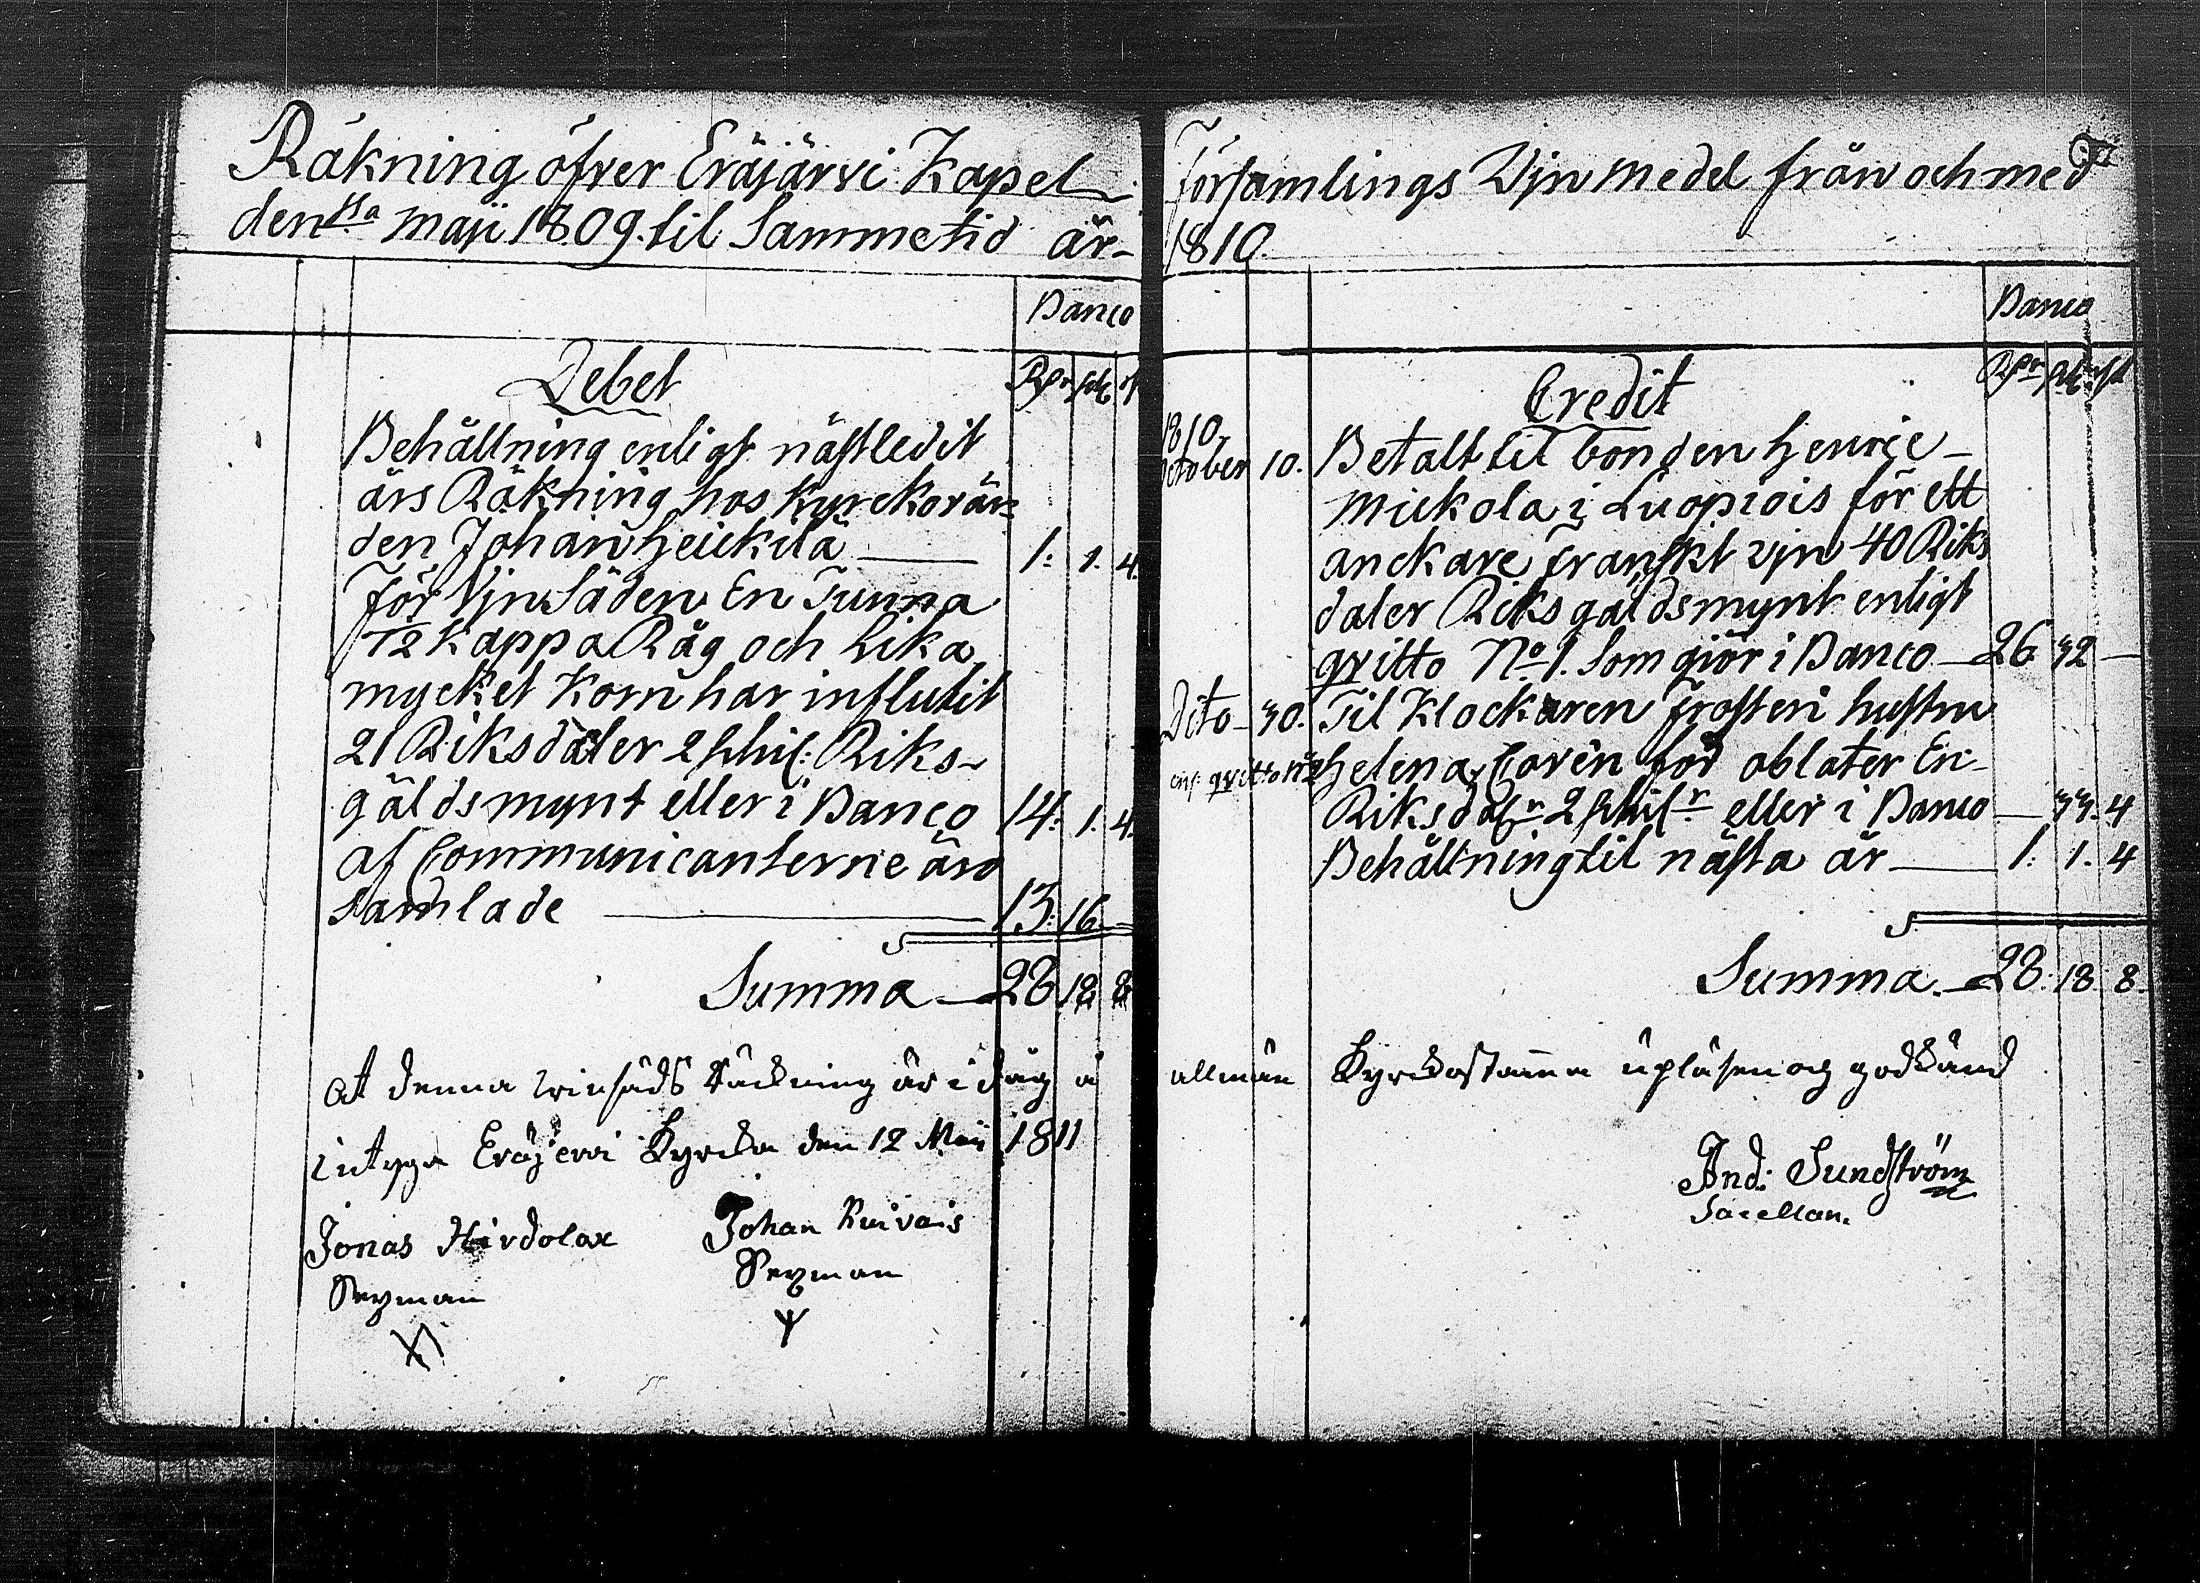 Räkning öfver Eräjärvi Kapel
den 1sta Maji 1809. til Samme tid år
Banco
Debet
Rdr sk rst
Behållning enligt nästledit
års Räkning hos Kyrckovär=
den Johan Heickilä 1. 1. 4.
För Vjn Säden En Tunna
12 kappa Råg och Lika
mycket Korn har influtit
21 Riksdaler 2 skil: Riks-
gäldsmynt eller i Banco 14. 1. 4.
Af Communicanterne äro
samlade 13. 16. -
Summa 28. 18. 8
At denna winsäds Räckning är i dag i
intyga Eräjervi Kyrcka den 12 Maii 1811
Jonas Hirdolax
Sexman
Johan Ruivais
Sexman
Församlings Vjn medel från och med
1810.
Banco
Credit
Rdr sk rst
1810,
October 10. Betalt til bonden Henric
Mickola i Luopiois för ett
anckare Franskt vjn 40 Riks
daler Riksgäldsmynt enligt
qvitto No. 1. Som giör i Banco 26 32 -
Dito 30. Til Klockaren Frosteri hustru
enl: qvitto No 2 Helena Corên för oblater En
Riksdalr 2 skilr eller i Banco - 33. 4
Behållning til nästa år 1. 1. 4
Summa 28. 18. 8.
allmän Kyrckostämma upläsen och godkänd
And: Sundström
Sacellan.